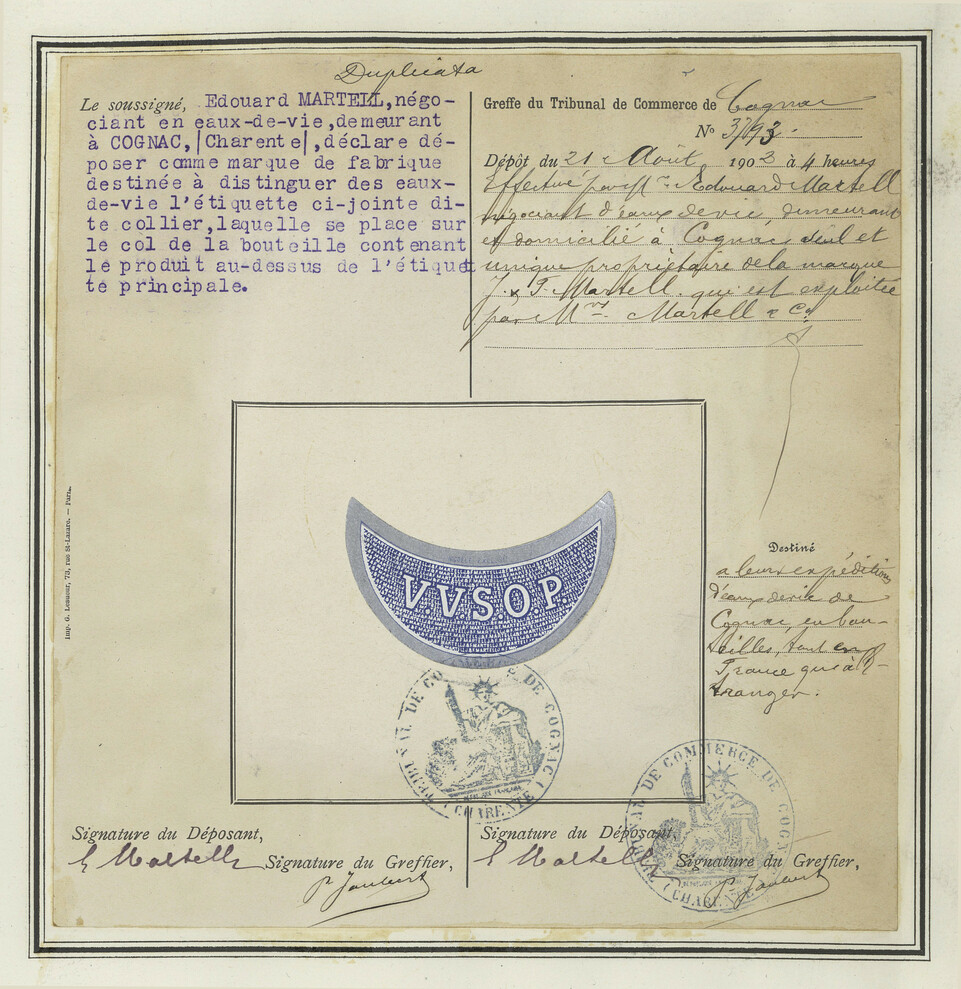 Duplicata
Le soussigné, Edouard MARTELL, négo-
ciant en eaux-de-vie, demeurant
à COGNAC, |Charente|, déclare dé-
poser comme marque de fabrique
destinée à distinguer des eaux-
de-vie l'étiquette ci-jointe di-
te collier, laquelle se place sur
le col de la bouteille contenant
le produit au-dessus de l'étiquet
te principale.
Greffe du Tribunal de Commerce de Cognac
N° 3793.
Dépôt du 21 Août 1903 à 4 heures
Effectué par Mr Edouard Martell
négociant d'eaux de vie demeurant
et domicilié à Cognac seul et
unique propriétaire de la marque
J. & F. Martell. qui est exploitée
par Mrs Martell & Co.
Imp. G. Lesueur, 73, rue St-Lazare. — Paris.
V.V.S.O.P
Destiné
a leurs expéditions
d'eaux de vie de
Cognac, en bou-
teilles, tant en
France qu'à l'é-
tranger.
TRIBUNAL DE COMMERCE DE COGNAC
(CHARENTE)
TRIBUNAL DE COMMERCE DE COGNAC
(CHARENTE)
Signature du Déposant,
E Martell
Signature du Greffier,
P. Jaubert
Signature du Déposant,
E Martell
Signature du Greffier,
P. Jaubert